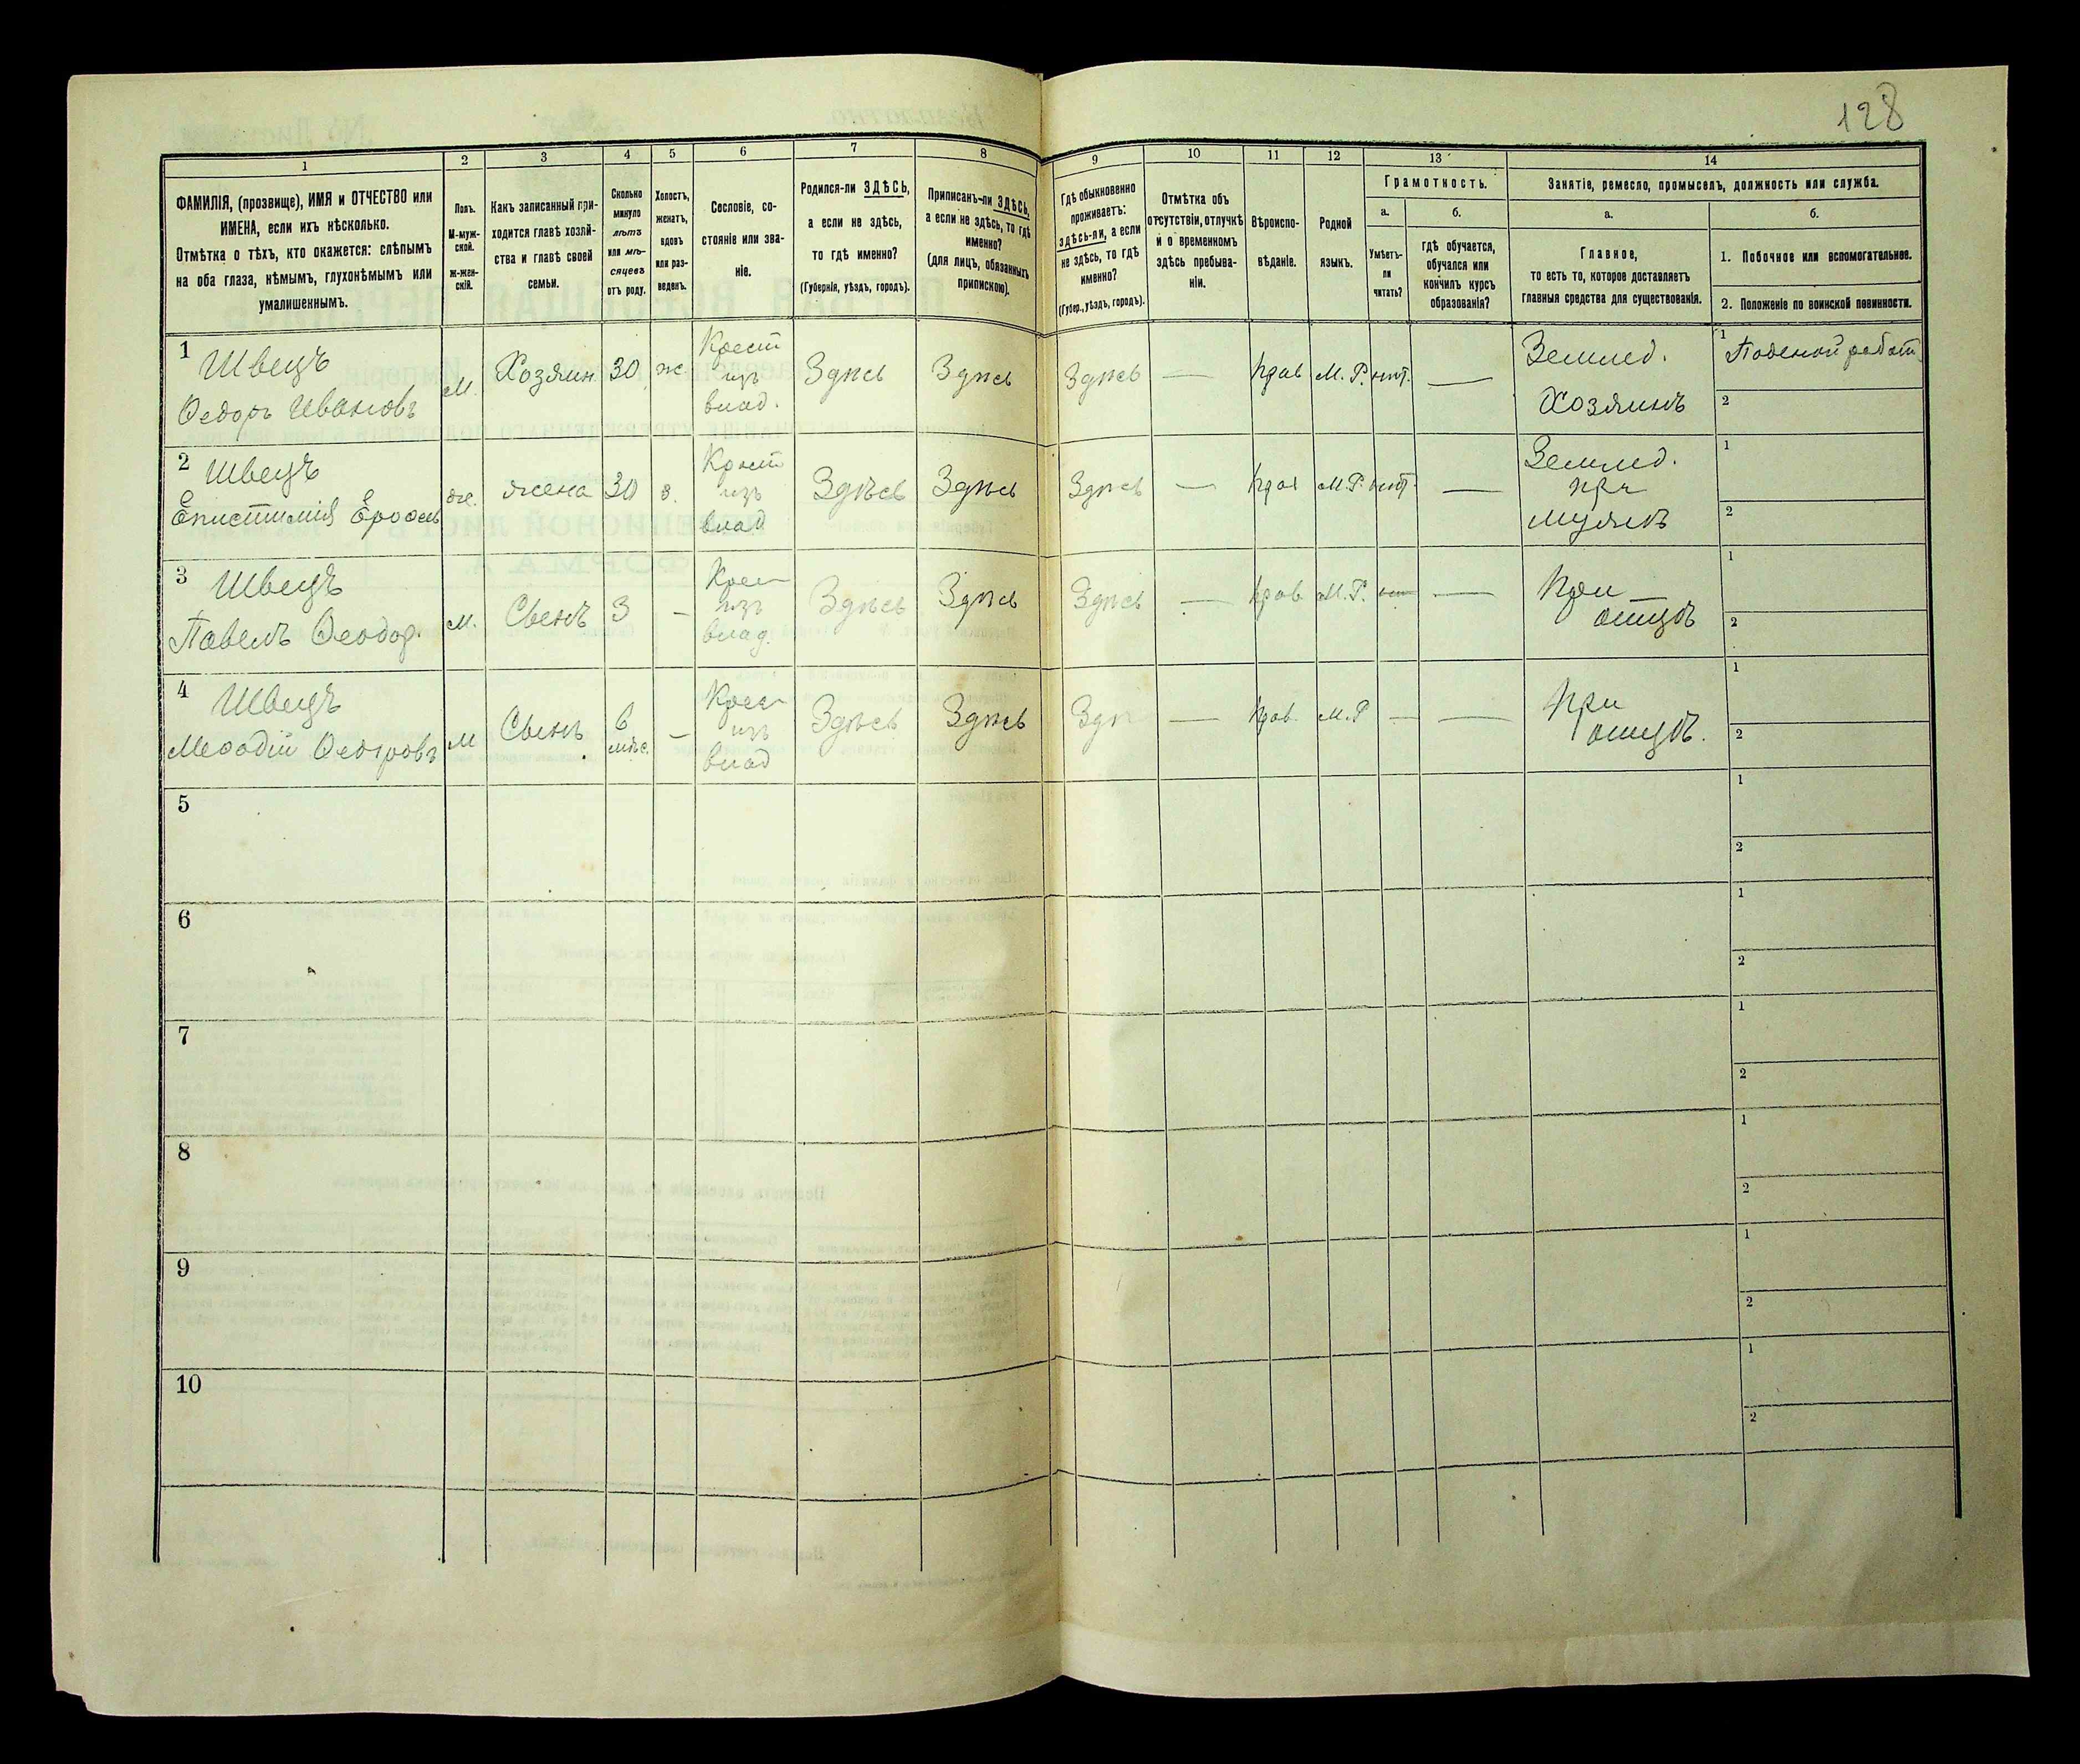 128
1 2 3 4 5 6 7 8 9 10 11 12 13 14
ФАМИЛІЯ, (прозвище), ИМЯ и ОТЧЕСТВО или
ИМЕНА, если ихъ нѣсколько.
Отмѣтка о тѣхъ, кто окажется: слѣпымъ
на оба глаза, нѣмымъ, глухонѣмымъ или
умалишеннымъ.
Полъ.
М-муж-
ской.
ж-жен-
скій.
Какъ записанный при-
ходится главѣ хозяй-
ства и главѣ своей
семьи.
Сколько
минуло
лѣтъ
или мѣ-
сяцевъ
отъ роду.
Холостъ,
женатъ,
вдовъ
или раз-
веденъ.
Сословіе, со-
стояніе или зва-
ніе.
Родился-ли ЗДѢСЬ,
а если не здѣсь,
то гдѣ именно?
(Губернія, уѣздъ, городъ).
Приписанъ-ли ЗДѢСЬ,
а если не здѣсь, то гдѣ
именно?
(для лицъ, обязанныхъ
припискою).
Гдѣ обыкновенно
проживаетъ:
здѣсь-ли, а если
не здѣсь, то гдѣ
именно?
(Губер., уѣздъ, городъ).
Отмѣтка объ
отсутствіи, отлучкѣ
и о временномъ
здѣсь пребыва-
ніи.
Вѣроиспо-
вѣданіе.
Родной
языкъ.
Грамотность.
а.
Умѣетъ-
ли
читать?
б.
гдѣ обучается,
обучался или
кончилъ курсъ
образованія?
Занятіе, ремесло, промыселъ, должность или служба.
а.
Главное,
то есть то, которое доставляетъ
главныя средства для существованія.
б.
1. Побочное или вспомогательное.
2. Положеніе по воинской повинности.
1 Швецъ
Ѳедоръ Ивановъ
М.
Хозяин
30
ж
Крест
изъ
влад.
Здѣсь
Здѣсь
Здѣсь
—
прав
М. Р.
нѣт.
—
Землед.
Хозяинъ
1 Поденой работ
2
2 Швецъ
Епистимія
же.
жена
30
з.
Крест
изъ
влад
Здѣсь
Здѣсь
Здѣсь
—
прав
М. Р.
нѣт.
—
Землед.
при
мужѣ
1
2
3 Швецъ
Павелъ Ѳеодор.
м.
Сынъ
3
—
Крест
изъ
влад.
Здѣсь
Здѣсь
Здѣсь
—
прав
М. Р.
—
При
отцѣ
1
2
4 Швецъ
Меѳодій Ѳедоровъ
м
Сынъ
6
мѣс.
—
Крест
изъ
влад
Здѣсь
Здѣсь
Здѣ
—
прав.
М. Р
—
—
При
отцѣ.
1
2
5
1
2
6
1
2
7
1
2
8
1
2
9
1
2
10
1
2